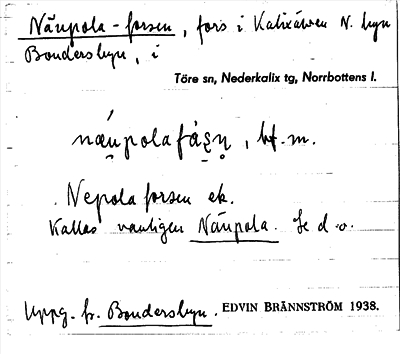 Näupola-forsen, fors i Kalixälven N. byn
Bondersbyn, i
Töre sn, Nederkalix tg, Norrbottens l.
nǽ̣upolafȧ̀ʂn̥, bf. m.
Nepola forsen ek.
Kallas vanligen Näupola. Se d. o.
Uppg. fr. Bondersbyn. EDVIN BRÄNNSTRÖM 1938.